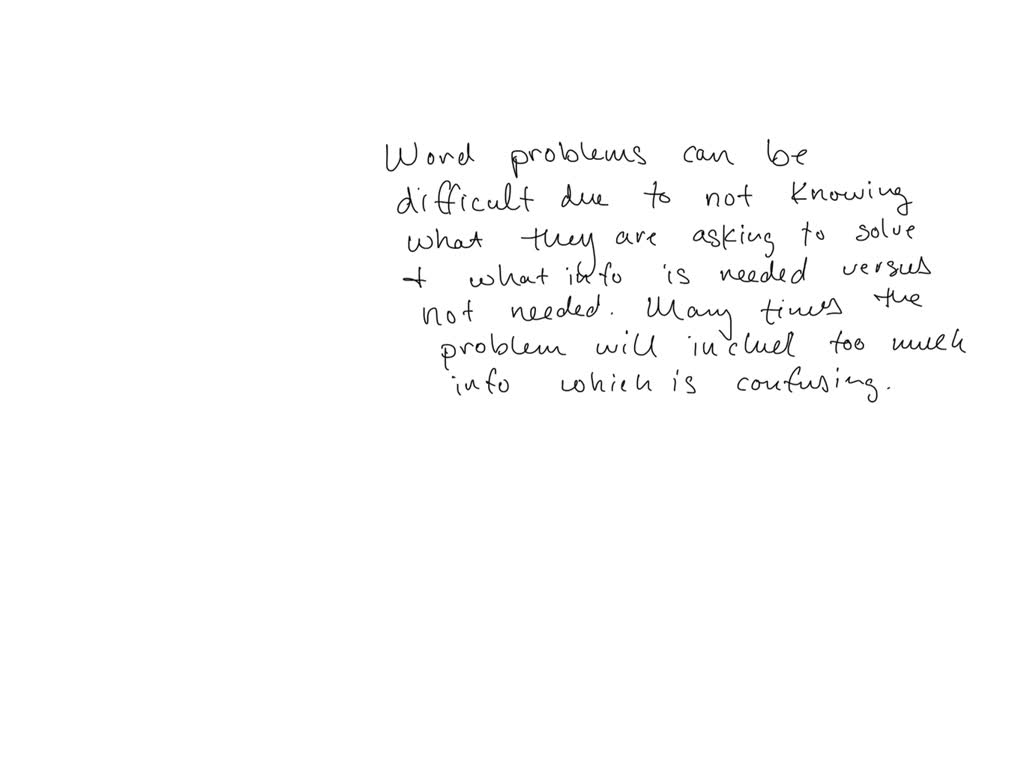 Word problems can be
difficult due to not knowing
what they are asking to solve
+ what info is needed versus
not needed. Many times the
problem will includ too much
info which is confusing.